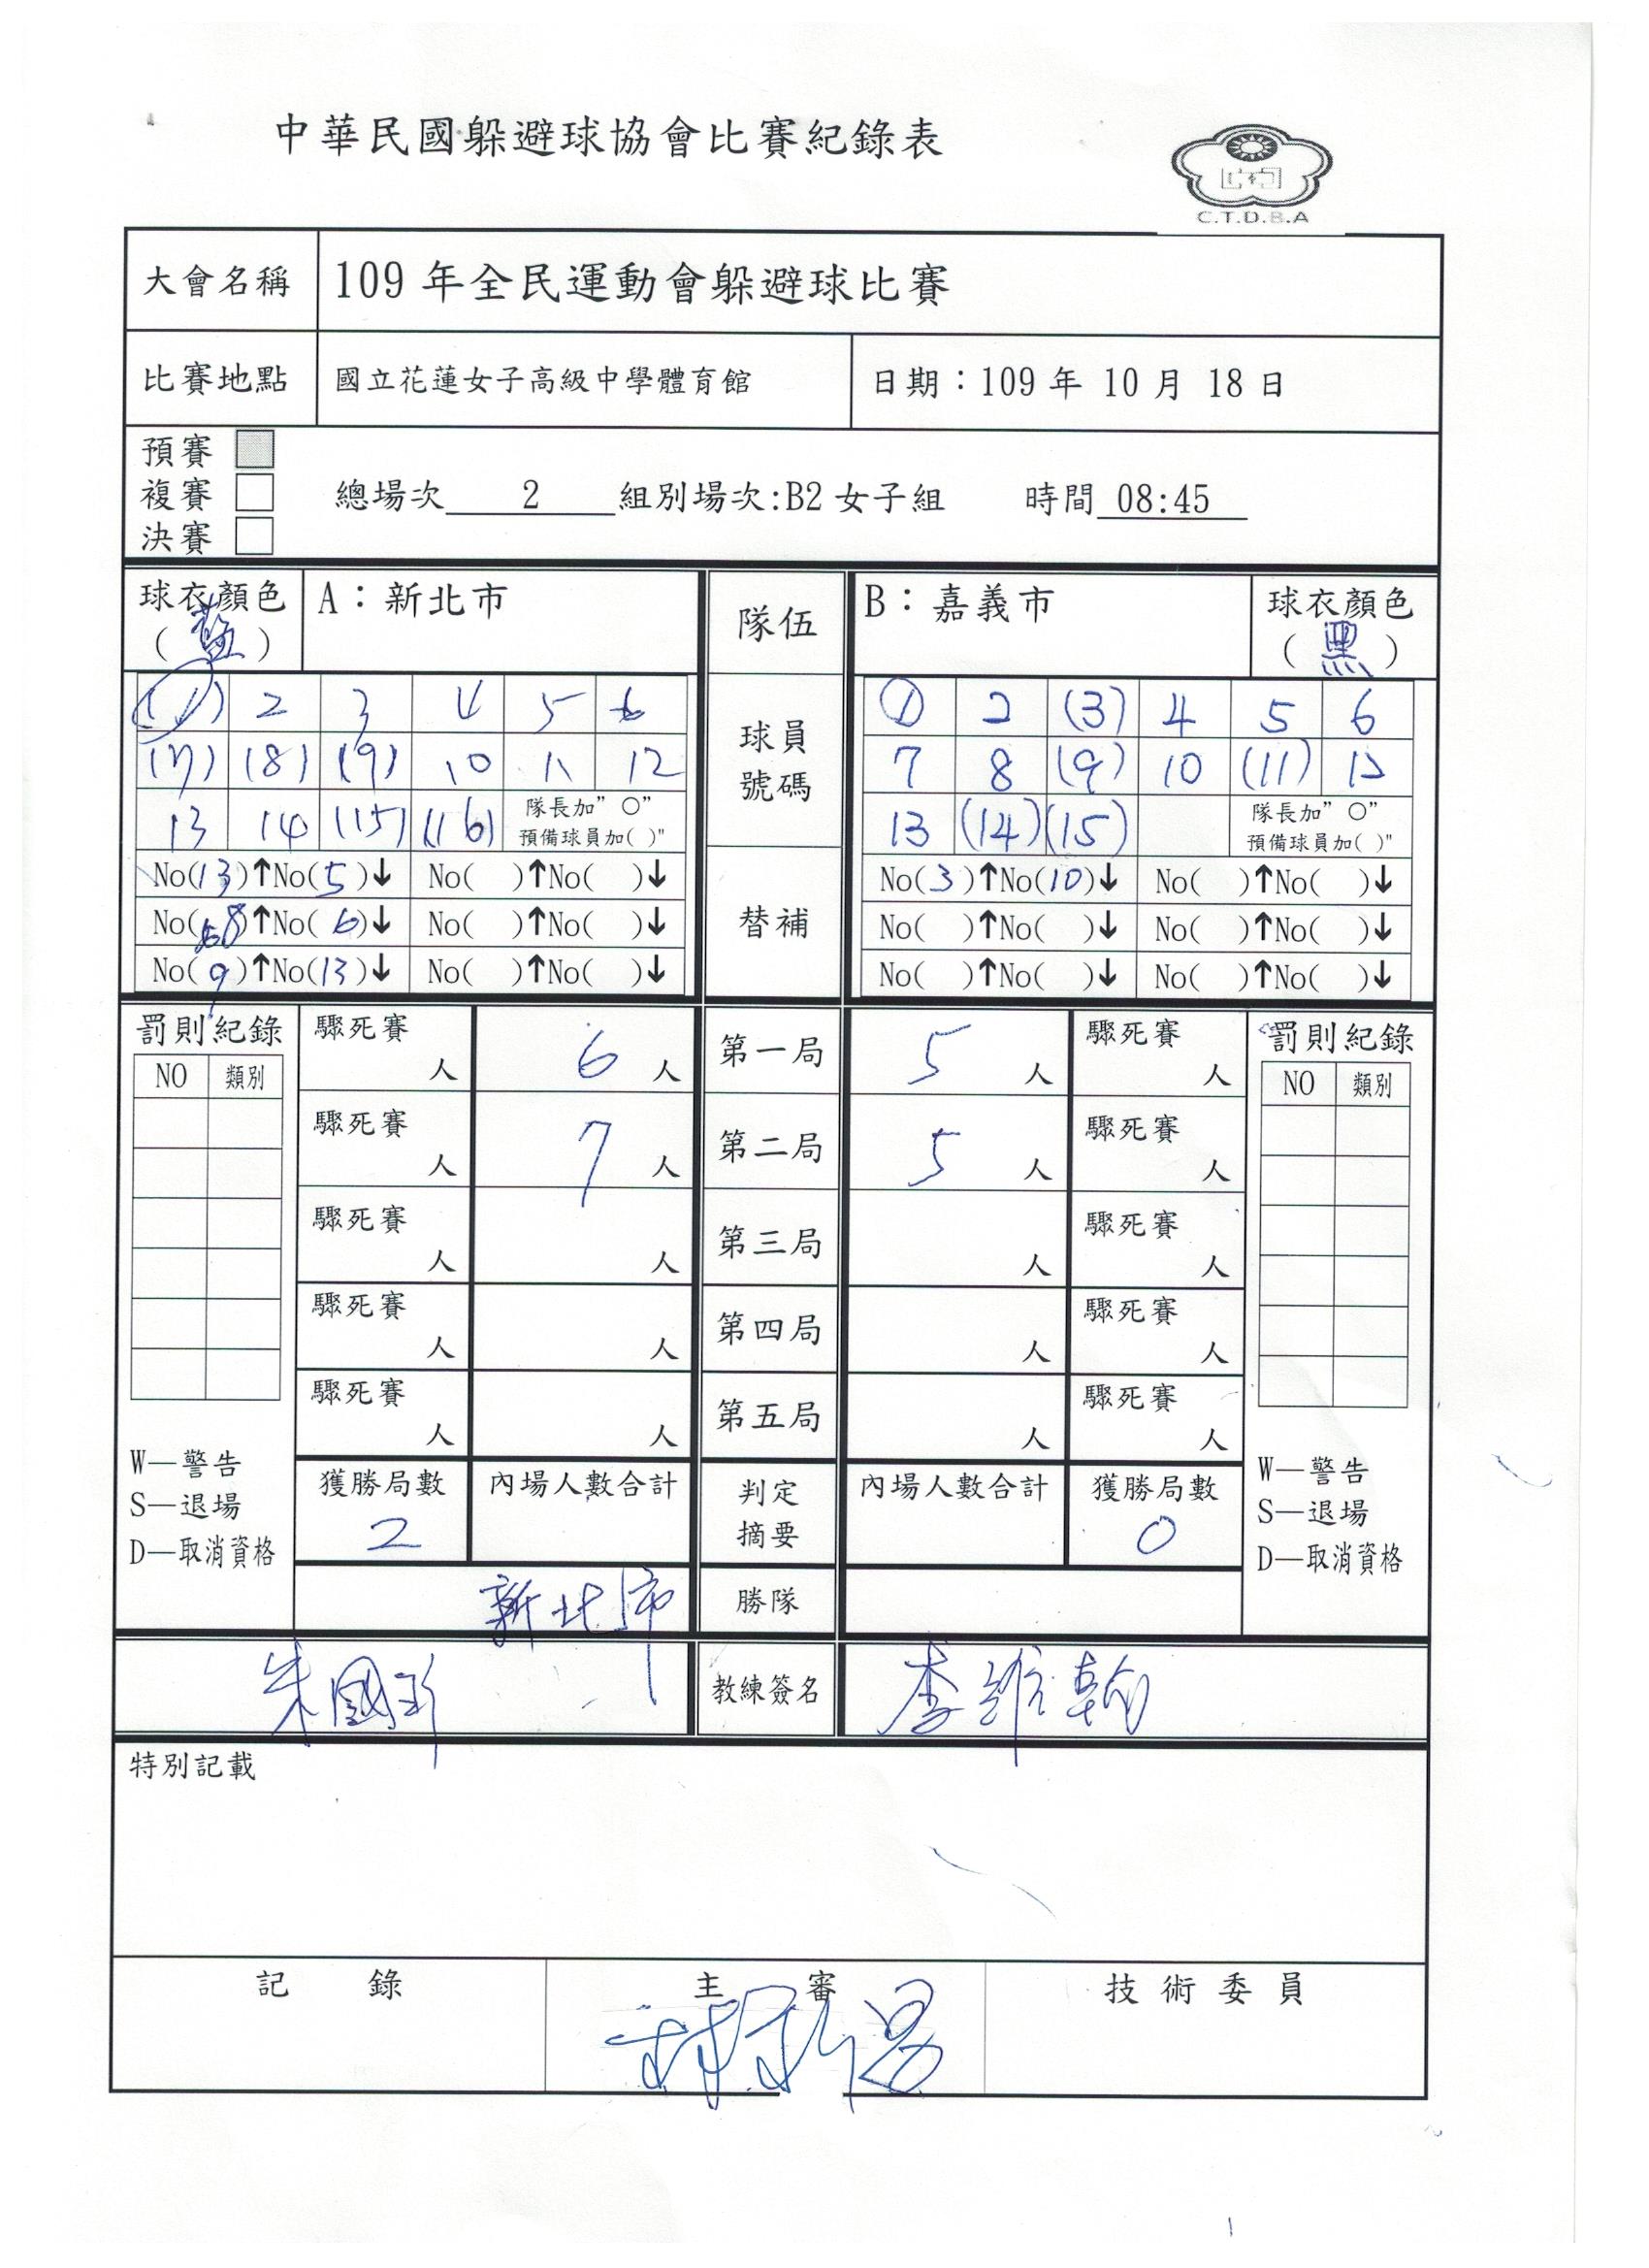 中華民國躲避球協會比賽紀錄表
C.T.D.B.A
大會名稱 109 年全民運動會躲避球比賽
比賽地點 國立花蓮女子高級中學體育館 日期：109 年 10 月 18 日
預賽
複賽 總場次 2 組別場次:B2 女子組 時間 08:45
決賽
球衣顏色 A：新北市 隊伍 B：嘉義市 球衣顏色
(藍) (黑)
球員號碼
(1) 2 3 4 5 6 ① 2 (3) 4 5 6
(7) (8) (9) 10 11 12 7 8 (9) 10 (11) 12
13 14 (15) (16) 隊長加"○" 13 (14) (15) 隊長加"○"
預備球員加( )" 預備球員加( )"
替補
No(13)↑No(5)↓ No( )↑No( )↓ No(3)↑No(10)↓ No( )↑No( )↓
No(8)↑No(6)↓ No( )↑No( )↓ No( )↑No( )↓ No( )↑No( )↓
No(9)↑No(13)↓ No( )↑No( )↓ No( )↑No( )↓ No( )↑No( )↓
罰則紀錄 驟死賽 人 6 人 第一局 5 人 驟死賽 人 罰則紀錄
NO 類別 NO 類別
驟死賽 人 7 人 第二局 5 人 驟死賽 人
驟死賽 人 人 第三局 人 驟死賽 人
驟死賽 人 人 第四局 人 驟死賽 人
驟死賽 人 人 第五局 人 驟死賽 人
W—警告 獲勝局數 內場人數合計 判定 內場人數合計 獲勝局數 W—警告
S—退場 2 摘要 0 S—退場
D—取消資格 D—取消資格
新北市 勝隊
朱國 教練簽名 李維翰
特別記載
記 錄 主 審 技 術 委 員